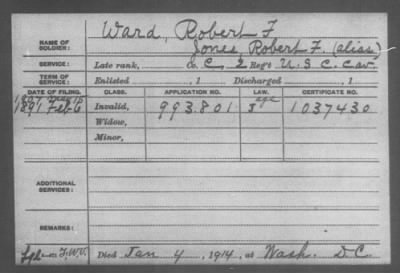 NAME OF SOLDIER: Ward, Robert F
Jones, Robert F. (alias)
SERVICE: Late rank, Co. C, 2 Regt U.S.C. Cav.
TERM OF SERVICE: Enlisted , 1 Discharged , 1
DATE OF FILING. CLASS. APPLICATION NO. LAW. CERTIFICATE NO.
1891 Feb 6 Invalid, 993.801 J 1037430
Widow,
Minor,
ADDITIONAL SERVICES:
REMARKS:
Died Jan 4, 1914, at Wash. D.C.